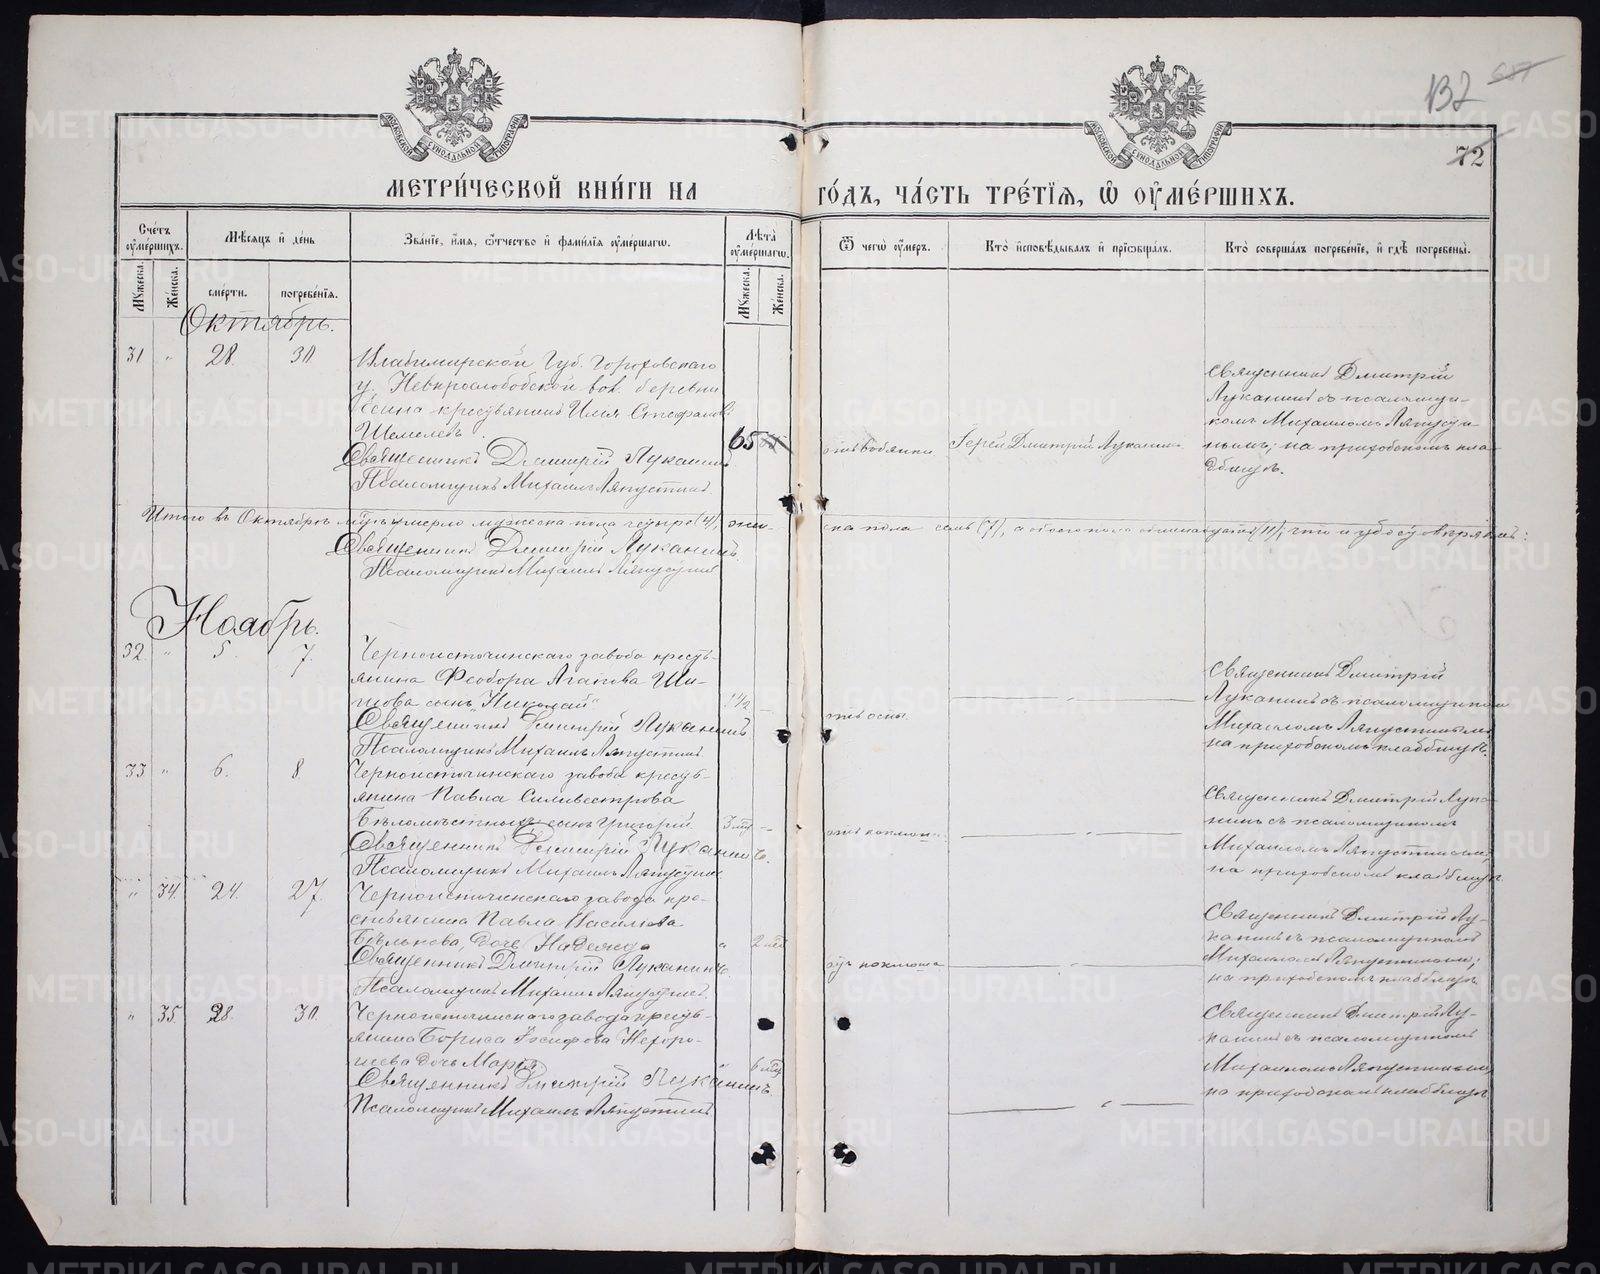 132
687
72
МОСКОВСКОЙ СУНОДАЛЬНОЙ ТИПОГРАФІИ
МОСКОВСКОЙ СУНОДАЛЬНОЙ ТИПОГРАФІИ
МЕТРИ́ЧЕСКОЙ КНИ́ГИ НА ГО́ДЪ, ЧА́СТЬ ТРЕ́ТЇѦ, Ѡ ОУМЕ́РШИХЪ.
Сче́тъ оуме́ршихъ.
Мѣ́сѧцъ и де́нь
Зва́нїе, и́мѧ, ѻ́тчество и фами́лїѧ оуме́ршагѡ.
Лѣ́та оуме́ршагѡ.
Ѿ чегѡ̀ оу́меръ.
Кто̀ исповѣ́дывалъ и прїѡбща́лъ.
Кто̀ соверша́лъ погребе́нїе, и гдѣ̀ погребены̀.
Му́жеска.
Же́нска.
сме́рти.
погребе́нїѧ.
Му́жеска.
Же́нска.
Октябрь.
31 " 28 30 Владимирской Губ. Гороховскаго
у. вол. деревни
крестьянинъ Илья Стефановъ
Шемелевъ. 65
Священникъ Димитрій Луканинъ
Псаломщикъ Михаилъ Ляпустинъ
отъ водянки
Іерей Димитрій Луканинъ.
Священникъ Димитрій
Луканинъ съ псаломщи-
комъ Михаиломъ Ляпусти-
нымъ; на приходскомъ кла-
дбищѣ.
Итого въ Октябрѣ м-цѣ умерло мужеска пола четыре (4), жен-
ска пола семь (7), а обоего пола одиннадцать (11); что и удостовѣряемъ:
Священникъ Димитрій Луканинъ.
Псаломщикъ Михаилъ Ляпустинъ
Ноябрь.
32. " 5. 7. Черноисточинскаго завода кресть-
янина Феодора Агапова Ши-
пова сынъ "Николай" 1½ –
Священникъ Димитрій Луканинъ
Псаломщикъ Михаилъ Ляпустинъ
отъ оспы.
Священникъ Димитрій
Луканинъ съ псаломщикомъ
Михаиломъ Ляпустинымъ
на приходскомъ кладбищѣ.
33 " 6. 8 Черноисточинскаго завода кресть-
янина Павла Силивестрова
сынъ Григорій 3 –
Священникъ Димитрій Луканинъ.
Псаломщикъ Михаилъ Ляпустинъ
отъ коклюша
Священникъ Димитрій Лука-
нинъ съ псаломщикомъ
Михаиломъ Ляпустинымъ;
на приходскомъ кладбищѣ.
" 34. 24. 27. Черноисточинскаго завода кре-
стьянина Павла Васильева
Бѣлькова, дочь Надежда " 2
Священникъ Димитрій Луканинъ.
Псаломщикъ Михаилъ Ляпустинъ.
отъ коклюша
Священникъ Димитрій Лу-
канинъ съ псаломщикомъ
Михаиломъ Ляпустинымъ;
на приходскомъ кладбищѣ.
" 35. 28. 30. Черноисточинскаго завода кресть-
янина Бориса Іосифова Нехоро-
шева дочь Марія 6
Священникъ Димитрій Луканинъ.
Псаломщикъ Михаилъ Ляпустинъ
Священникъ Димитрій Лу-
канинъ съ псаломщикомъ
Михаиломъ Ляпустинымъ,
на приходскомъ кладбищѣ
METRIKI.GASO-URAL.RU